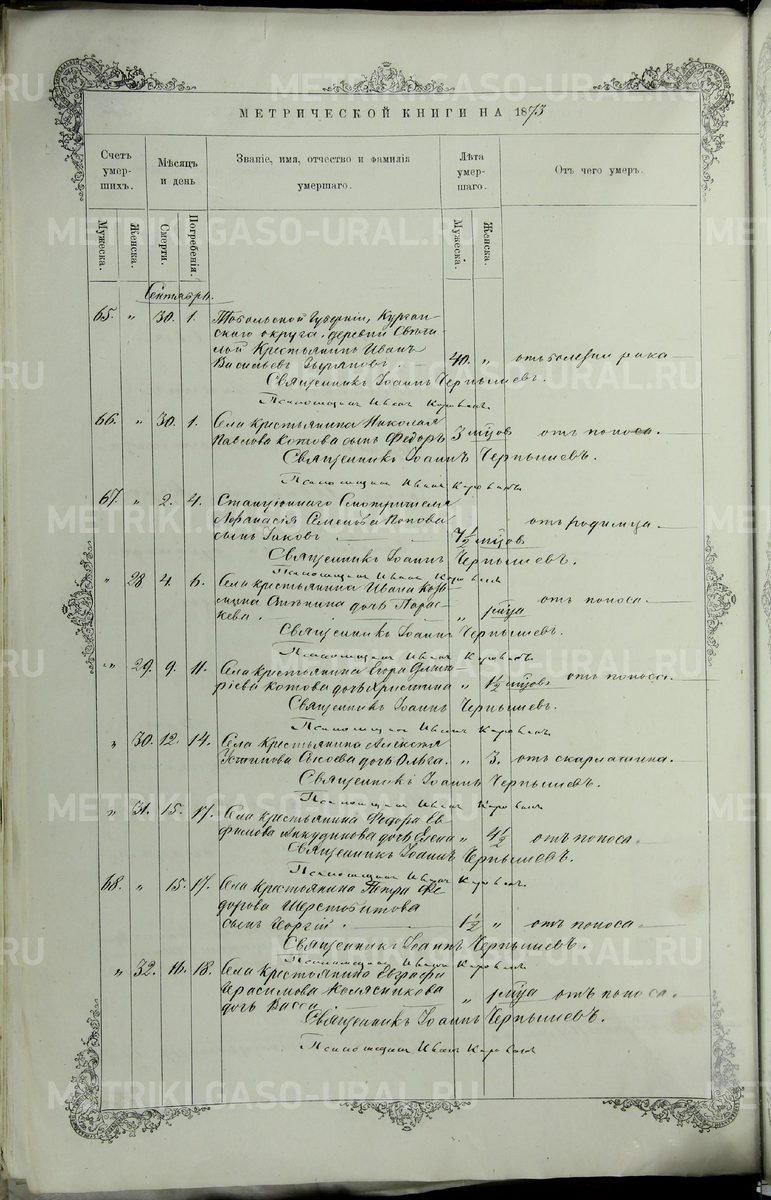 МЕТРИЧЕСКОЙ КНИГИ НА 1873
Счетъ умер-шихъ.
Мѣсяцъ и день
Званіе, имя, отчество и фамилія умершаго.
Лѣта умер-шаго.
Отъ чего умеръ.
Мужеска.
Женска.
Смерти.
Погребенія.
Мужеска.
Женска.
Сентябрь.
65. " 30. 1. Тобольской Губерніи, Курган-
скаго округа, деревни
Крестьянинъ Иванъ
Васильевъ 40. " отъ болезни рака
Священникъ Іоаннъ Чернышевъ.
Псаломщикъ Иванъ
66. " 30. 1. Села крестьянина Николая
Павлова Котова сынъ Федоръ 3 мцов отъ поноса.
Священникъ Іоаннъ Чернышевъ.
Псаломщикъ Иванъ
67. " 2. 4. Станціоннаго Смотрителя
Афанасія Семенова Попова
сынъ Іаковъ 7½ мцов отъ родимца
Священникъ Іоаннъ Чернышевъ.
Псаломщикъ Иванъ
" 28 4. 6. Села крестьянина Ивана Козь-
мина дочь Парас-
кева. " мца отъ поноса.
Священникъ Іоаннъ Чернышевъ.
Псаломщикъ Иванъ
" 29. 9. 11. Села крестьянина Егора Дмит-
ріева Котова дочь Христина " 1½ мцов отъ поноса.
Священникъ Іоаннъ Чернышевъ.
Псаломщикъ Иванъ
" 30. 12. 14. Села крестьянина Алексея
Устинова Сысоева дочь Ольга. " 3. отъ скарлатина.
Священникъ Іоаннъ Чернышевъ.
Псаломщикъ Иванъ
" 31. 15. 17. Села крестьянина Федора Ев-
фимова Анкудинова дочь Елена " 4½ отъ поноса.
Священникъ Іоаннъ Чернышевъ.
Псаломщикъ Иванъ
68. " 15. 17. Села крестьянина Петра Фе-
дорова Шерстобитова
сынъ Георгій. 1½ " отъ поноса.
Священникъ Іоаннъ Чернышевъ.
Псаломщикъ Иванъ
" 32. 16. 18. Села крестьянина Евграфа
Герасимова Колясникова
дочь Васса " мца отъ поноса.
Священникъ Іоаннъ Чернышевъ.
Псаломщикъ Иванъ
METRIKI.GASO-URAL.RU